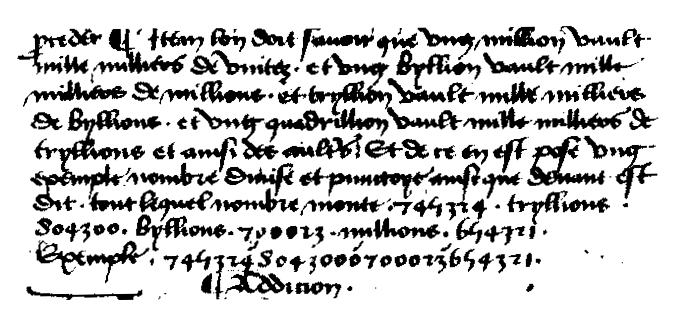 proceder ¶ Item lon doit sauoir que vng million vault
mille milliers de vnitez · et vng byllion vault mille
milliers de millions · et tryllion vault mille milliers
de byllions · et vng quadrillion vault mille milliers de
tryllions et ainsi des aultres Et de ce en est pose vng
exemple nombre diuise et punctoye ainsi que deuant est
dit · tout lequel nombre monte · 745324 · tryllions ·
804300 · byllions · 700023 · millions · 654321 ·
Exemple · 745324804300700023654321 ·
¶ Addicion ·